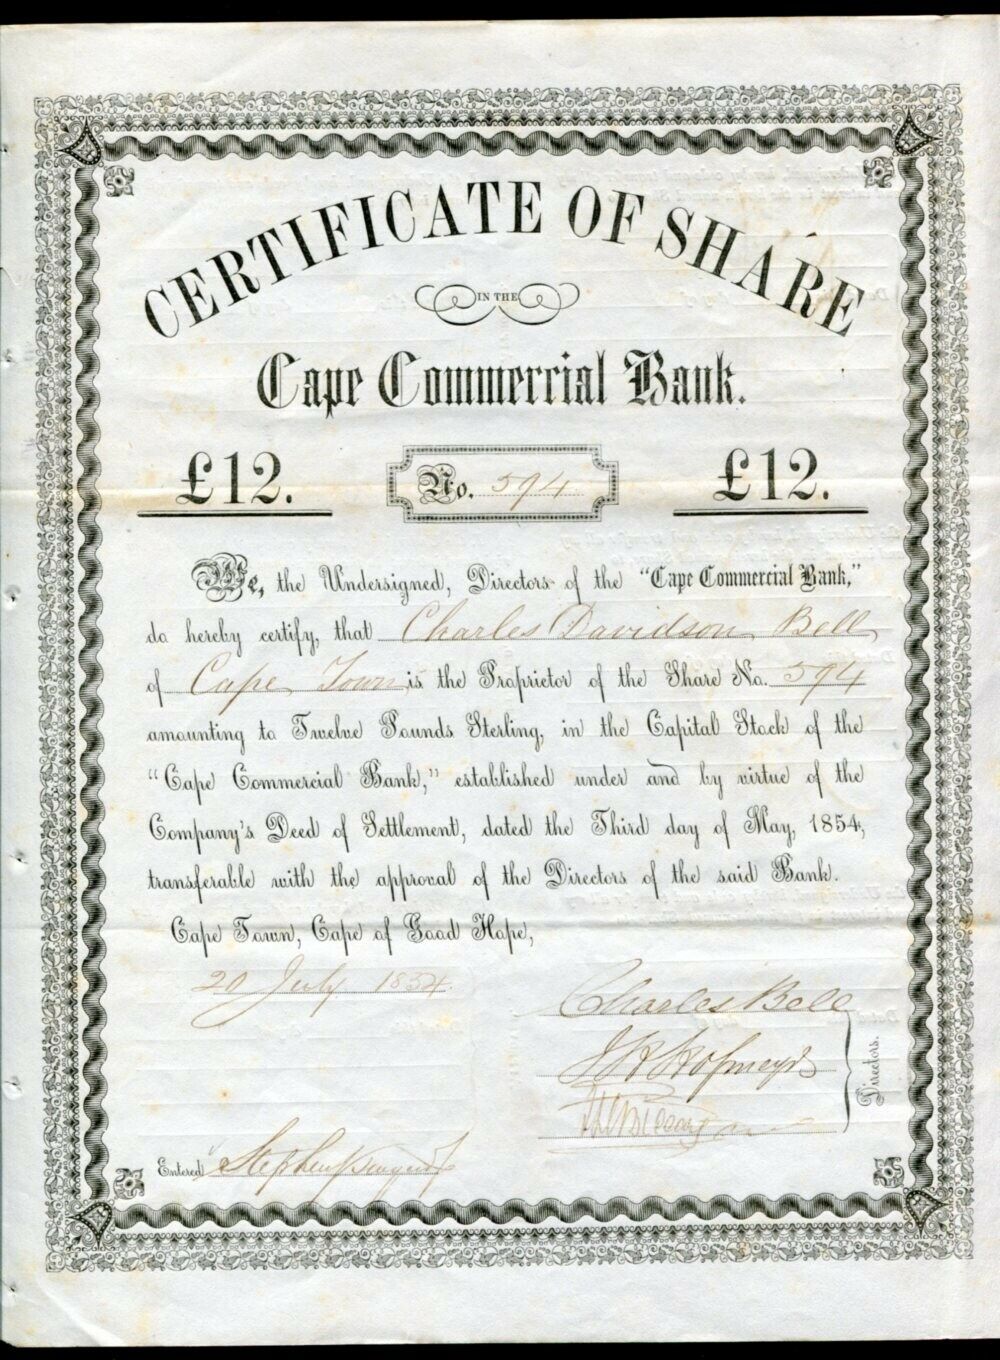 CERTIFICATE OF SHARE
IN THE
Cape Commercial Bank.
£12. No. 594 £12.
We, the Undersigned, Directors of the "Cape Commercial Bank,"
do hereby certify, that Charles Davidson Bell
of Cape Town is the Proprietor of the Share No. 594
amounting to Twelve Pounds Sterling, in the Capital Stock of the
"Cape Commercial Bank," established under and by virtue of the
Company's Deed of Settlement, dated the Third day of May, 1854,
transferable with the approval of the Directors of the said Bank.
Cape Town, Cape of Good Hope,
20 July 1854.
Charles Bell
J H Hofmeyr
Directors.
Entered Stephen